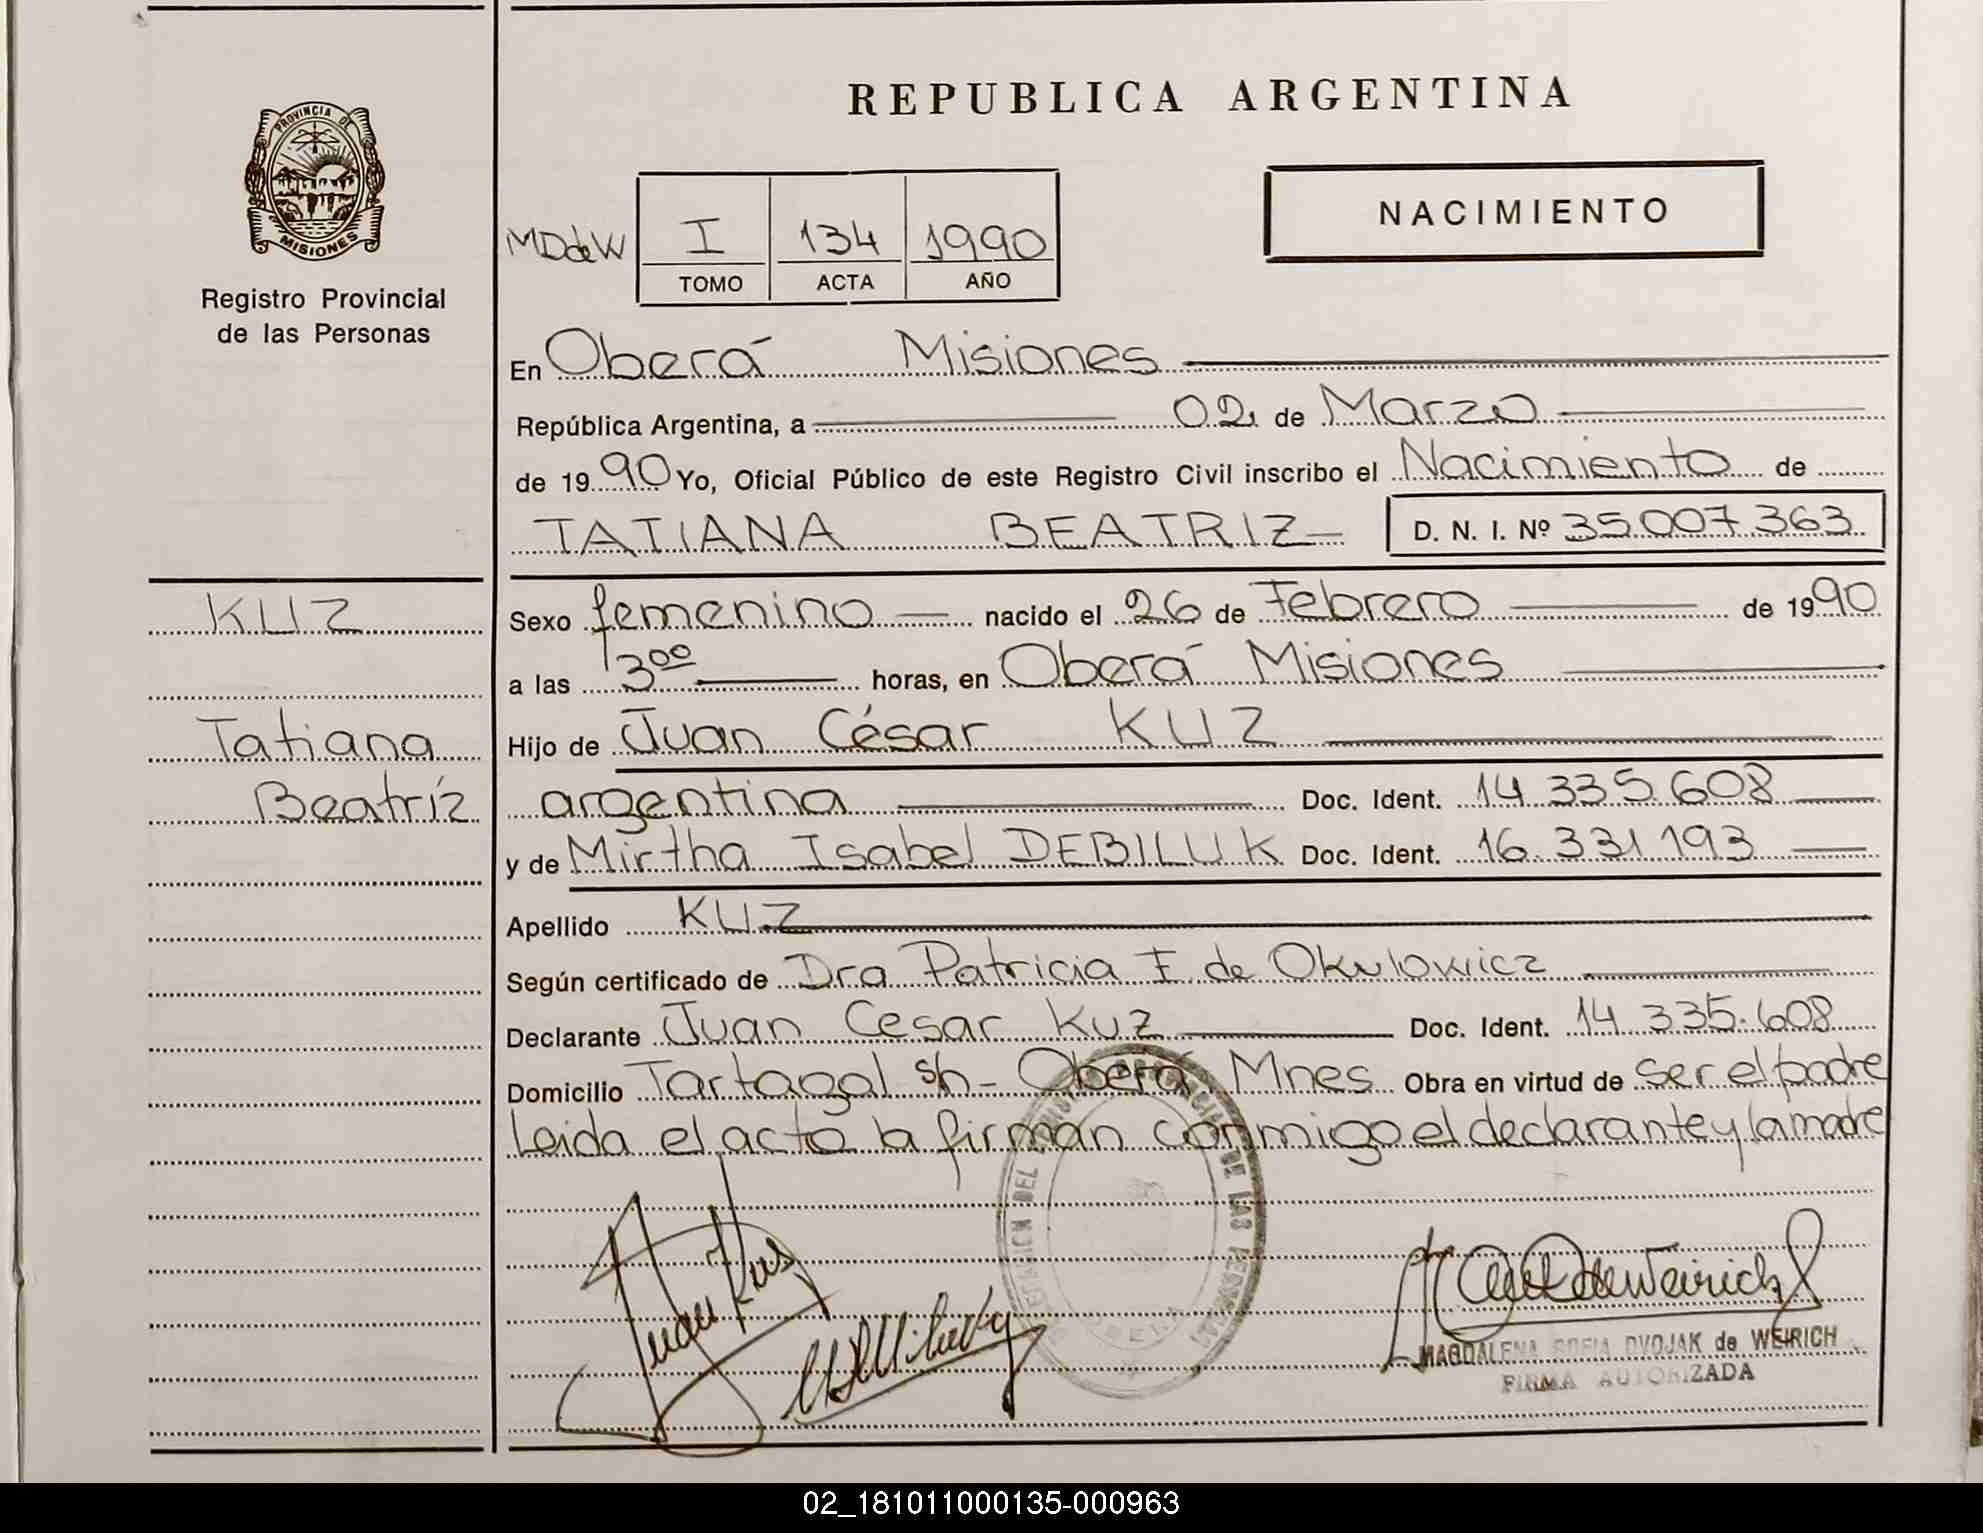 PROVINCIA DE
MISIONES
Registro Provincial
de las Personas
KUZ
Tatiana
Beatríz
REPUBLICA ARGENTINA
NACIMIENTO
MDdeW I 134 1990
TOMO ACTA AÑO
En Oberá Misiones
República Argentina, a 02 de Marzo
de 1990 Yo, Oficial Público de este Registro Civil inscribo el Nacimiento de
TATIANA BEATRIZ D. N. I. Nº 35.007.363
Sexo femenino nacido el 26 de Febrero de 1990
a las 13⁰⁰ horas, en Oberá Misiones
Hijo de Juan César KUZ
argentina Doc. Ident. 14.335.608
y de Mirtha Isabel DEBILUK Doc. Ident. 16.331.193
Apellido KUZ
Según certificado de Dra Patricia I. de Okulowicz
Declarante Juan Cesar Kuz Doc. Ident. 14.335.608
Domicilio Tartagal s/n - Oberá Mnes Obra en virtud de ser el padre
Leida el acto la firman conmigo el declarante y la madre
DE LAS PERSONAS
OBERA
Juan Kuz
MAGDALENA SOFIA DVOJAK de WEIRICH
FIRMA AUTORIZADA
02_181011000135-000963